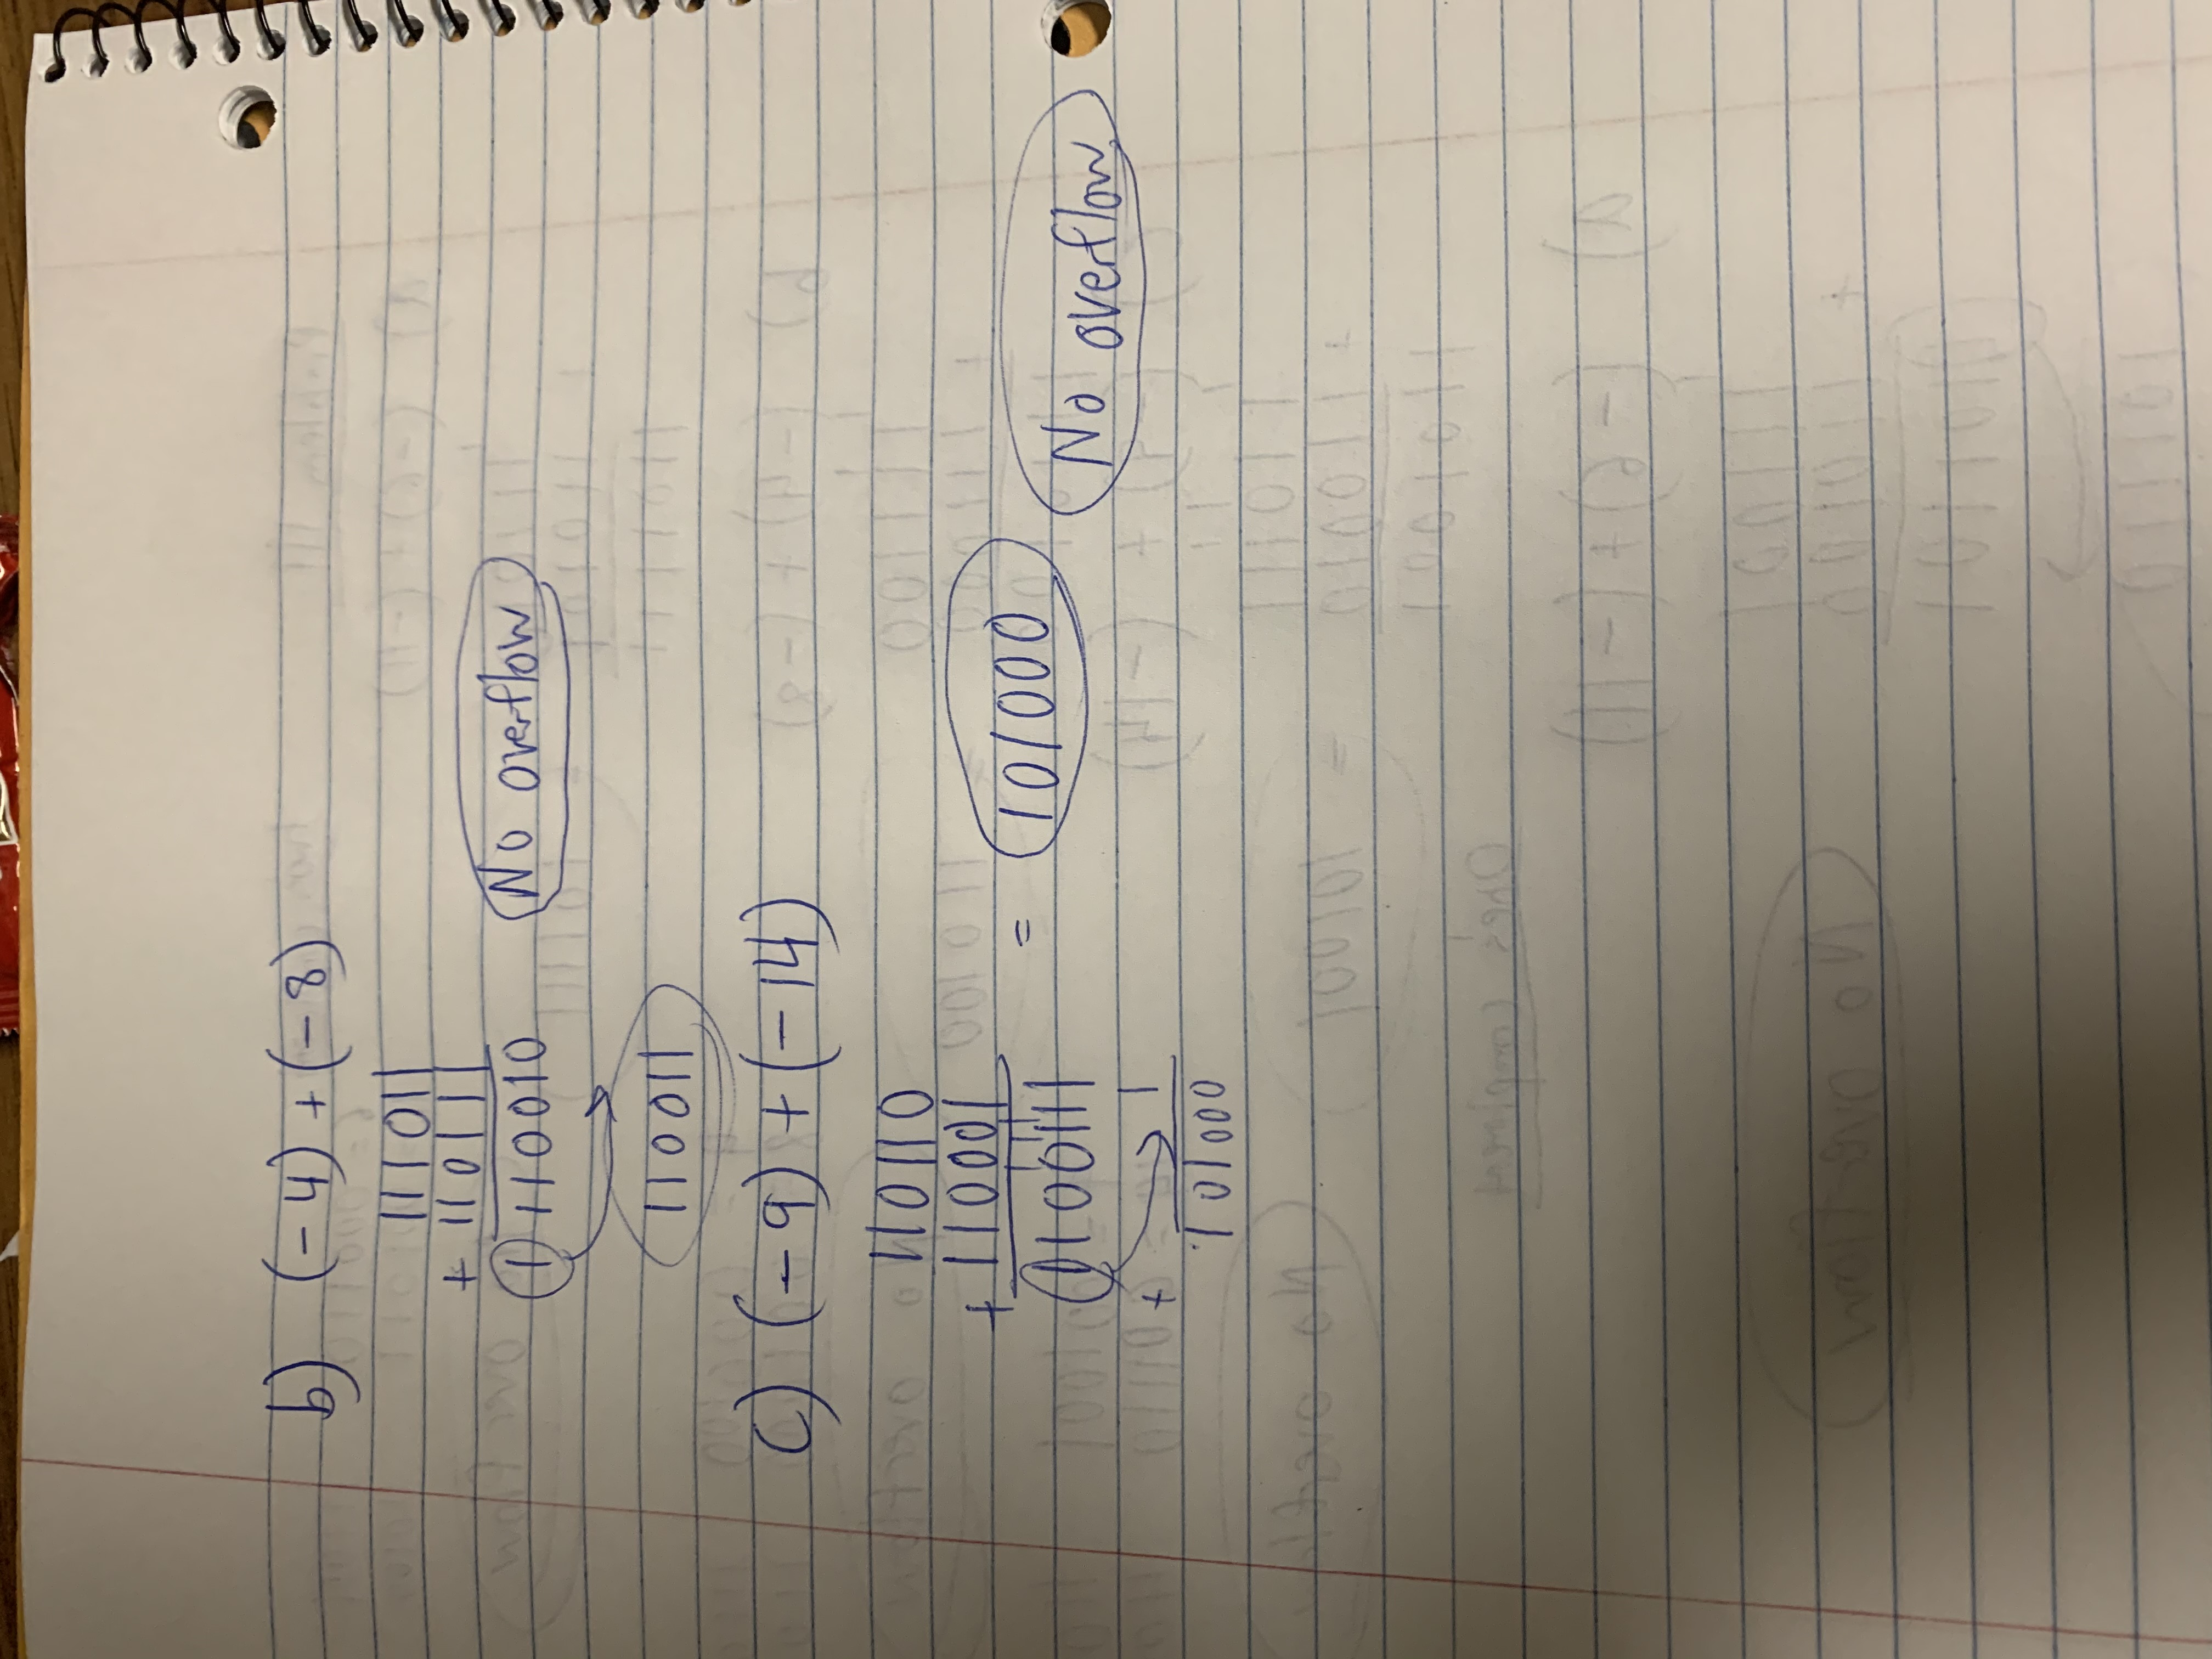 b) (-4) + (-8)
111011
+ 110111
1 110010 No overflow
110011
c) (-9) + (-14)
110110
+ 110001
1100111 = 101000 No overflow
+ 1
101000